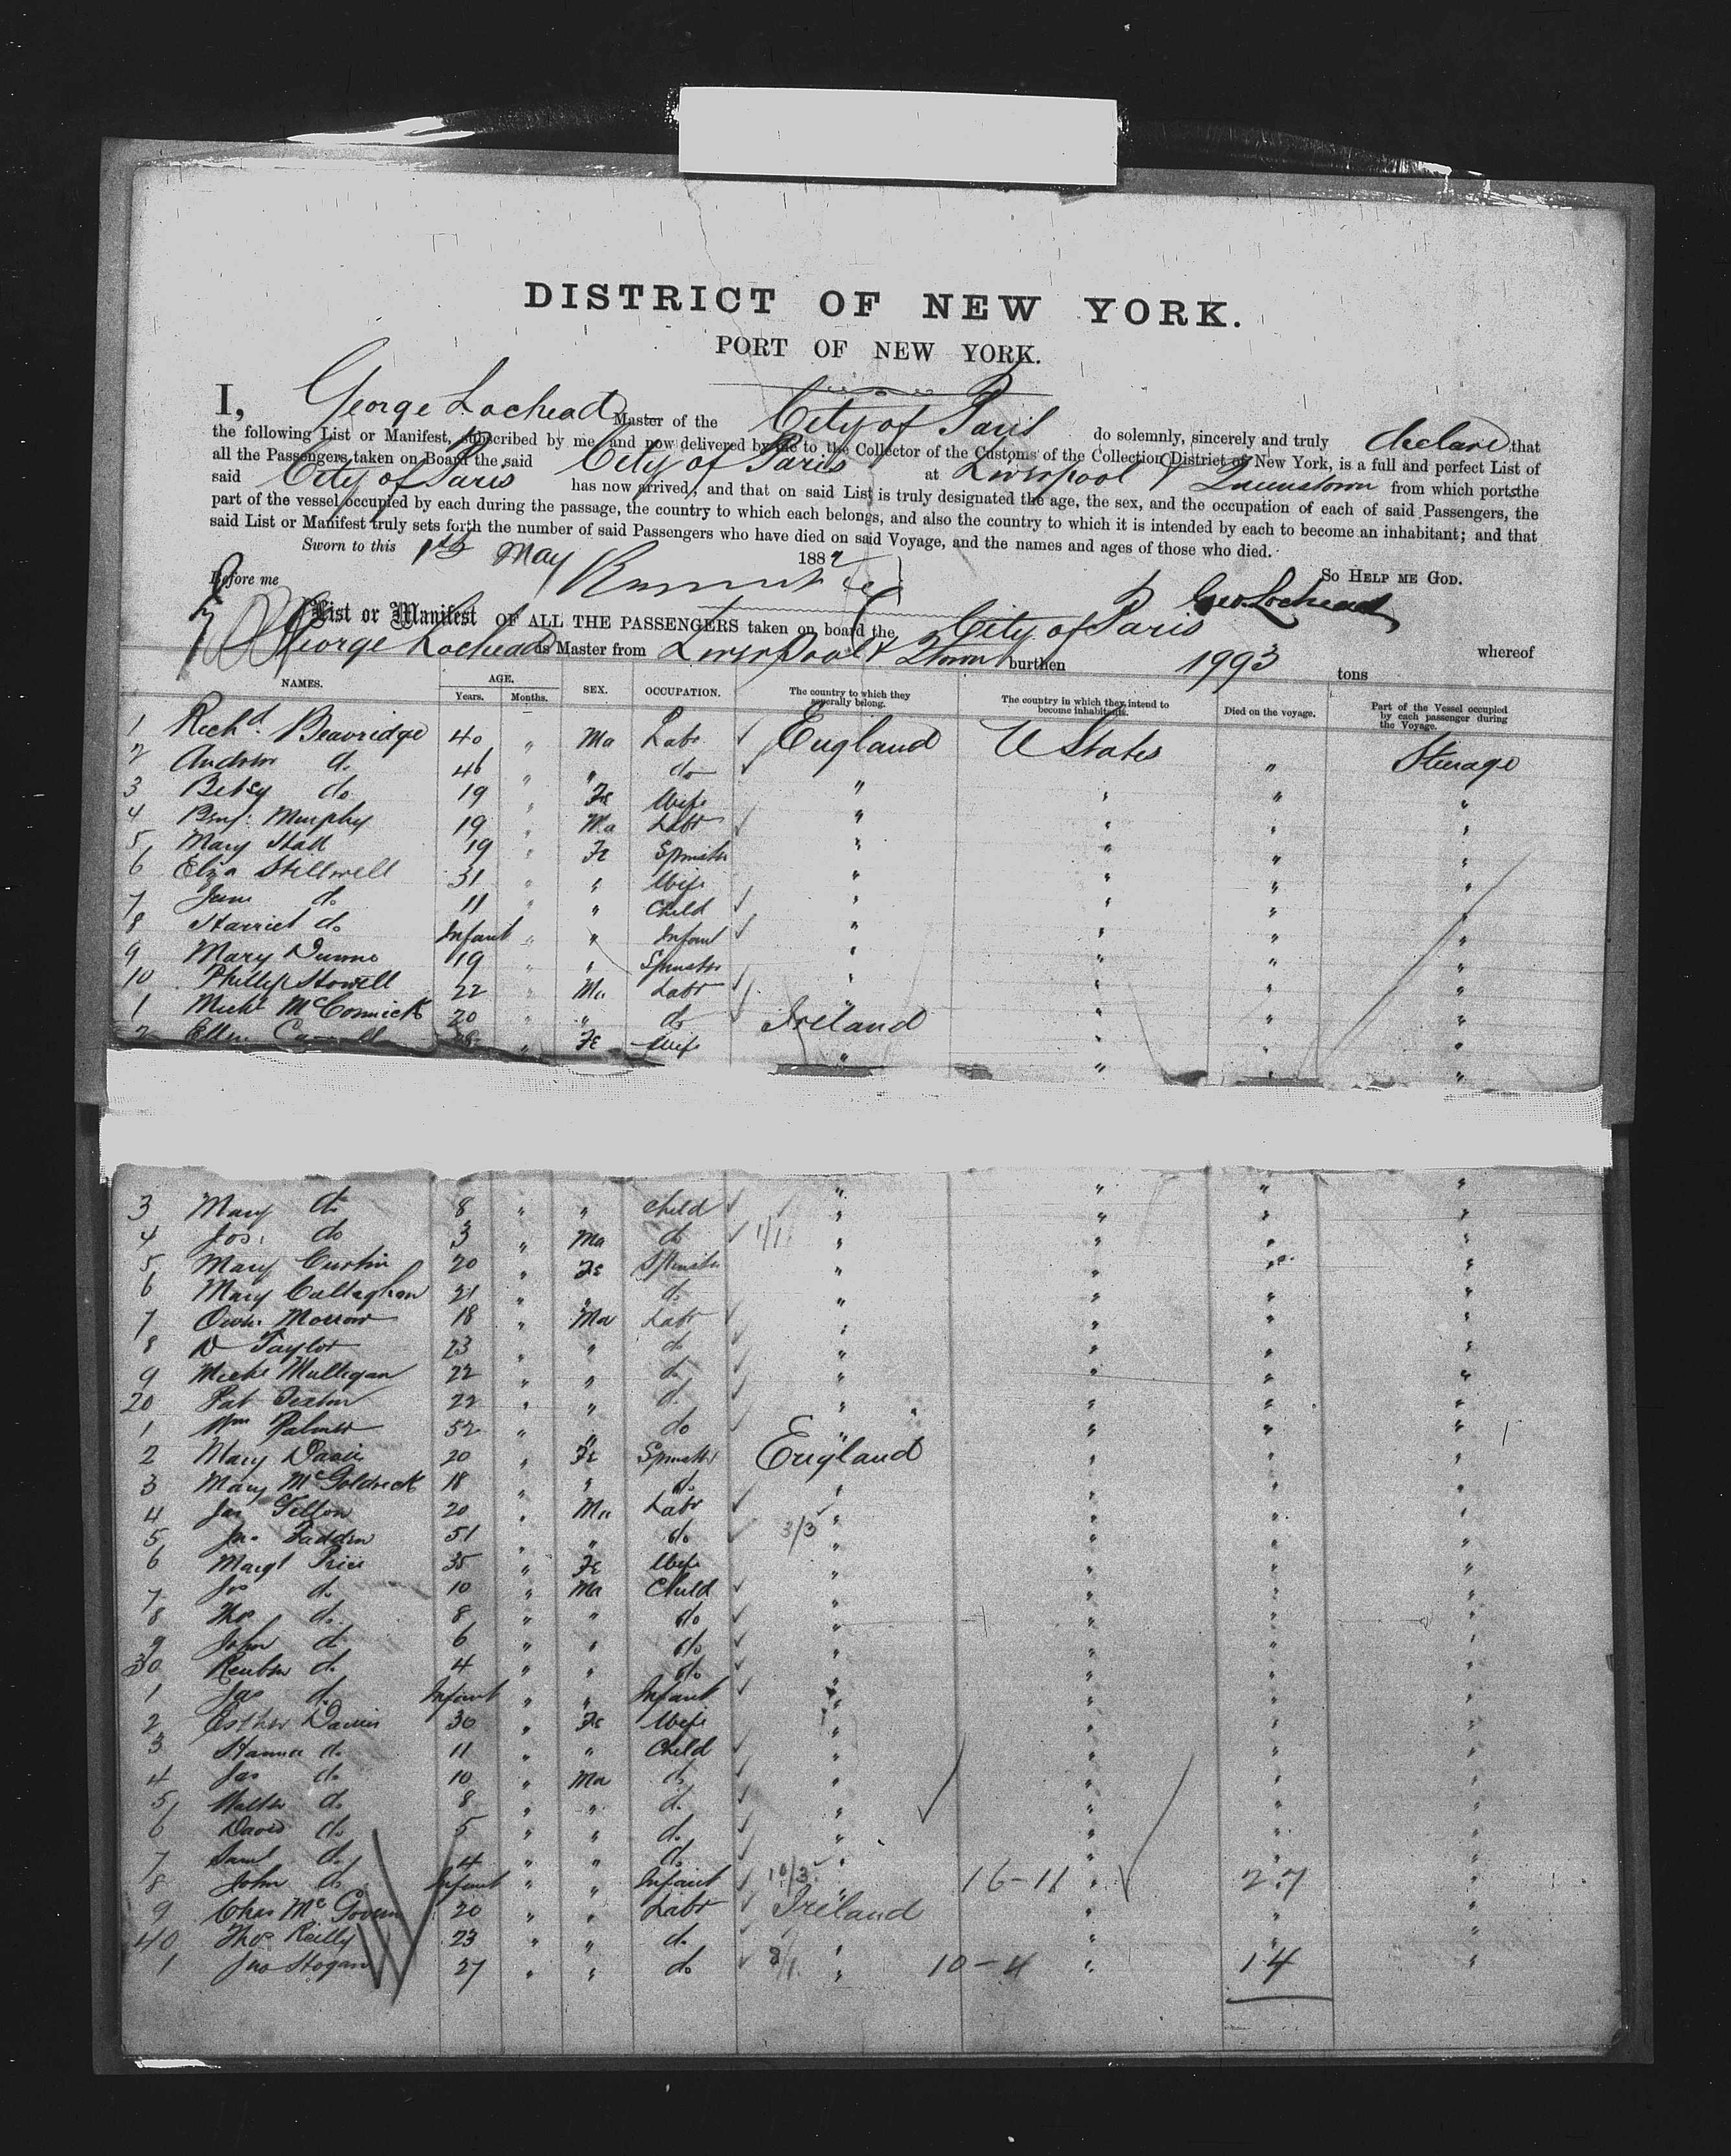 DISTRICT OF NEW YORK.
PORT OF NEW YORK.
I, George Lochead Master of the City of Paris do solemnly, sincerely and truly declare that
the following List or Manifest, subscribed by me, and now delivered by me to the Collector of the Customs of the Collection District of New York, is a full and perfect List of
all the Passengers taken on Board the said City of Paris at Liverpool & Queenstown from which ports the
said City of Paris has now arrived; and that on said List is truly designated the age, the sex, and the occupation of each of said Passengers, the
part of the vessel occupied by each during the passage, the country to which each belongs, and also the country to which it is intended by each to become an inhabitant; and that
said List or Manifest truly sets forth the number of said Passengers who have died on said Voyage, and the names and ages of those who died.
Sworn to this 1st May 1882 So Help me God.
Before me Geo Lochead
List or Manifest OF ALL THE PASSENGERS taken on board the City of Paris whereof
George Lochead is Master from Liverpool & Qtown burthen 1993 tons
NAMES. AGE. Years. Months. SEX. OCCUPATION. The country to which they severally belong. The country in which they intend to become inhabitants. Died on the voyage. Part of the Vessel occupied by each passenger during the Voyage.
1 Richd. Beavridge 40 " Ma Labr England U States Steerage
2 Andrew do 46 " " do " "
3 Betsy do 19 " Fe Wife " " " "
4 Benj. Murphy 19 " Ma Labr " " " "
5 Mary Hall 19 " Fe Spinster " " " "
6 Eliza Stillwell 31 " " Wife " " " "
7 Jane do 11 " " Child " " " "
8 Harriet do Infant " " Infant " " " "
9 Mary Dunne 19 " " Spinster " " " "
10 Phillip Stowell 22 " Ma Labr " " " "
1 Michl McCormick 20 " " do Ireland " " "
2 Ellen " Fe Wife " " " "
3 Mary do 8 " " Child " " " "
4 Jos. do 3 " Ma do 1/1 " " " "
5 Mary Curtin 20 " Fe Spinster " " " "
6 Mary Callaghan 21 " " do " " " "
7 Owen Morrow 18 " Ma Labr " " " "
8 D Taylor 23 " " do " " " "
9 Michl Mulligan 22 " " do " " " "
20 Pat Sexton 22 " " do " " " "
1 Wm Palmer 52 " " do " " " "
2 Mary Davis 20 " Fe Spinster England " " "
3 Mary McGoldrick 18 " " do " " " "
4 Jas Felton 20 " Ma Labr " " " "
5 Jno Faddin 51 " " do 3/3 " " " "
6 Margt Price 35 " Fe Wife " " " "
7 Jos do 10 " Ma Child " " " "
8 Thos do 8 " " do " " " "
9 John do 6 " " do " " " "
30 Reuben do 4 " " do " " " "
1 Jas do Infant " " Infant " " " "
2 Esther Davies 30 " Fe Wife " " " "
3 Hanna do 11 " " Child " " " "
4 Jas do 10 " Ma do " " " "
5 Walter do 8 " " do " " " "
6 David do 5 " " do " " " "
7 Saml do 4 " " do " " " "
8 John do Infant " " Infant 10/3 " 16-11 " 27 "
9 Chas McGovern 20 " " Labr Ireland " " "
40 Thos Reilly 23 " " do " " " "
1 Jno Hogan 27 " " do " 10-4 " 14 "